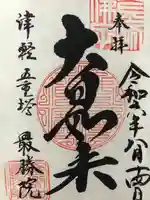 奉拝
令和六年八月十四日
大日如来
津軽 五重塔
最勝院